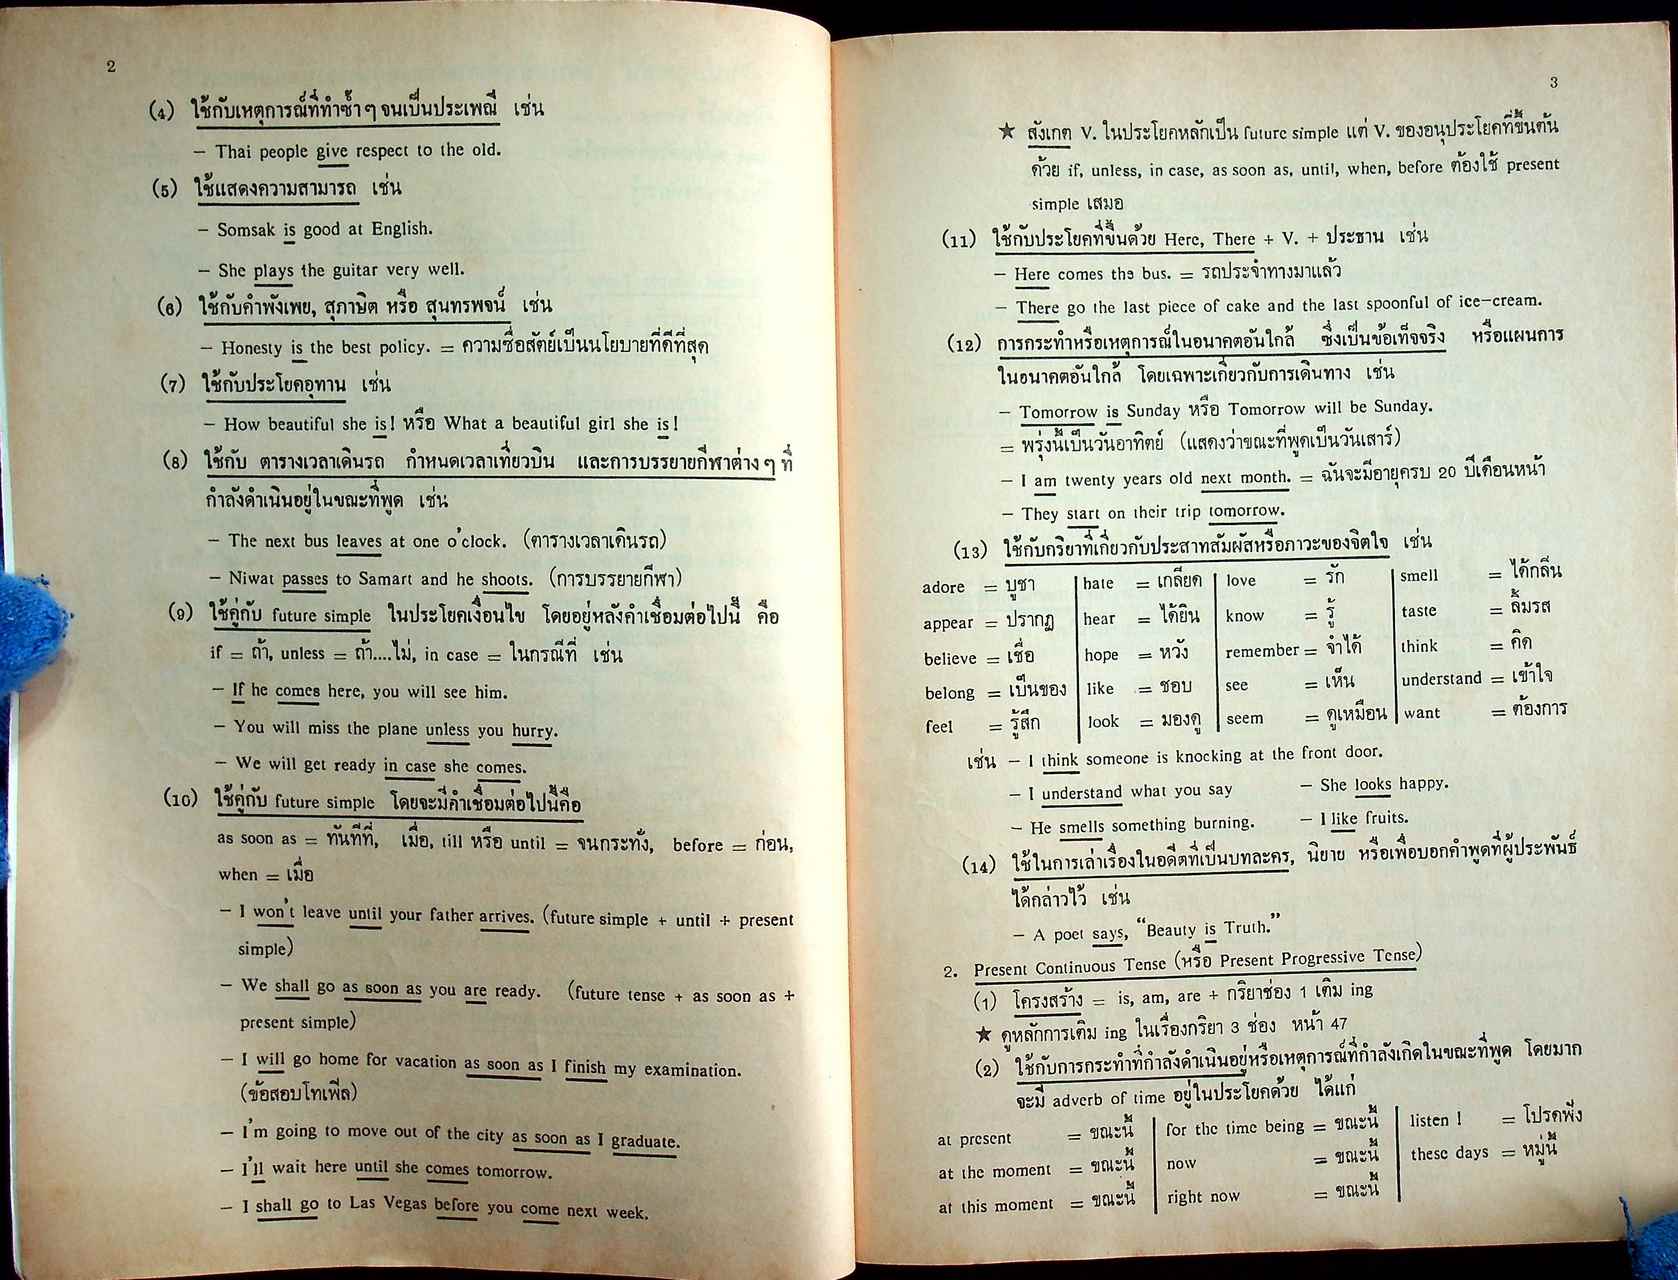 2
(4) ใช้กับเหตุการณ์ที่ทำซ้ำๆ จนเป็นประเพณี เช่น
– Thai people give respect to the old.
(5) ใช้แสดงความสามารถ เช่น
– Somsak is good at English.
– She plays the guitar very well.
(6) ใช้กับคำพังเพย, สุภาษิต หรือ สุนทรพจน์ เช่น
– Honesty is the best policy. = ความซื่อสัตย์เป็นนโยบายที่ดีที่สุด
(7) ใช้กับประโยคอุทาน เช่น
– How beautiful she is! หรือ What a beautiful girl she is!
(8) ใช้กับ ตารางเวลาเดินรถ กำหนดเวลาเที่ยวบิน และการบรรยายกีฬาต่างๆ ที่
กำลังดำเนินอยู่ในขณะที่พูด เช่น
– The next bus leaves at one o'clock. (ตารางเวลาเดินรถ)
– Niwat passes to Samart and he shoots. (การบรรยายกีฬา)
(9) ใช้คู่กับ future simple ในประโยคเงื่อนไข โดยอยู่หลังคำเชื่อมต่อไปนี้ คือ
if = ถ้า, unless = ถ้า....ไม่, in case = ในกรณีที่ เช่น
– If he comes here, you will see him.
– You will miss the plane unless you hurry.
– We will get ready in case she comes.
(10) ใช้คู่กับ future simple โดยจะมีคำเชื่อมต่อไปนี้คือ
as soon as = ทันทีที่, เมื่อ, till หรือ until = จนกระทั่ง, before = ก่อน,
when = เมื่อ
– I won't leave until your father arrives. (future simple + until + present
simple)
– We shall go as soon as you are ready. (future tense + as soon as +
present simple)
– I will go home for vacation as soon as I finish my examination.
(ข้อสอบโทเฟิล)
– I'm going to move out of the city as soon as I graduate.
– I'll wait here until she comes tomorrow.
– I shall go to Las Vegas before you come next week.
3
★ สังเกต V. ในประโยคหลักเป็น future simple แต่ V. ของอนุประโยคที่ขึ้นต้น
ด้วย if, unless, in case, as soon as, until, when, before ต้องใช้ present
simple เสมอ
(11) ใช้กับประโยคที่ขึ้นด้วย Here, There + V. + ประธาน เช่น
– Here comes the bus. = รถประจำทางมาแล้ว
– There go the last piece of cake and the last spoonful of ice-cream.
(12) การกระทำหรือเหตุการณ์ในอนาคตอันใกล้ ซึ่งเป็นข้อเท็จจริง หรือแผนการ
ในอนาคตอันใกล้ โดยเฉพาะเกี่ยวกับการเดินทาง เช่น
– Tomorrow is Sunday หรือ Tomorrow will be Sunday.
= พรุ่งนี้เป็นวันอาทิตย์ (แสดงว่าขณะที่พูดเป็นวันเสาร์)
– I am twenty years old next month. = ฉันจะมีอายุครบ 20 ปีเดือนหน้า
– They start on their trip tomorrow.
(13) ใช้กับกริยาที่เกี่ยวกับประสาทสัมผัสหรือภาวะของจิตใจ เช่น
adore = บูชา hate = เกลียด love = รัก smell = ได้กลิ่น
appear = ปรากฏ hear = ได้ยิน know = รู้ taste = ลิ้มรส
believe = เชื่อ hope = หวัง remember = จำได้ think = คิด
belong = เป็นของ like = ชอบ see = เห็น understand = เข้าใจ
feel = รู้สึก look = มองดู seem = ดูเหมือน want = ต้องการ
เช่น – I think someone is knocking at the front door.
– I understand what you say – She looks happy.
– He smells something burning. – I like fruits.
(14) ใช้ในการเล่าเรื่องในอดีตที่เป็นบทละคร, นิยาย หรือเพื่อบอกคำพูดที่ผู้ประพันธ์
ได้กล่าวไว้ เช่น
– A poet says, "Beauty is Truth."
2. Present Continuous Tense (หรือ Present Progressive Tense)
(1) โครงสร้าง = is, am, are + กริยาช่อง 1 เติม ing
★ ดูหลักการเติม ing ในเรื่องกริยา 3 ช่อง หน้า 47
(2) ใช้กับการกระทำที่กำลังดำเนินอยู่หรือเหตุการณ์ที่กำลังเกิดในขณะที่พูด โดยมาก
จะมี adverb of time อยู่ในประโยคด้วย ได้แก่
at present = ขณะนี้ for the time being = ขณะนี้ listen ! = โปรดฟัง
at the moment = ขณะนี้ now = ขณะนี้ these days = หมู่นี้
at this moment = ขณะนี้ right now = ขณะนี้